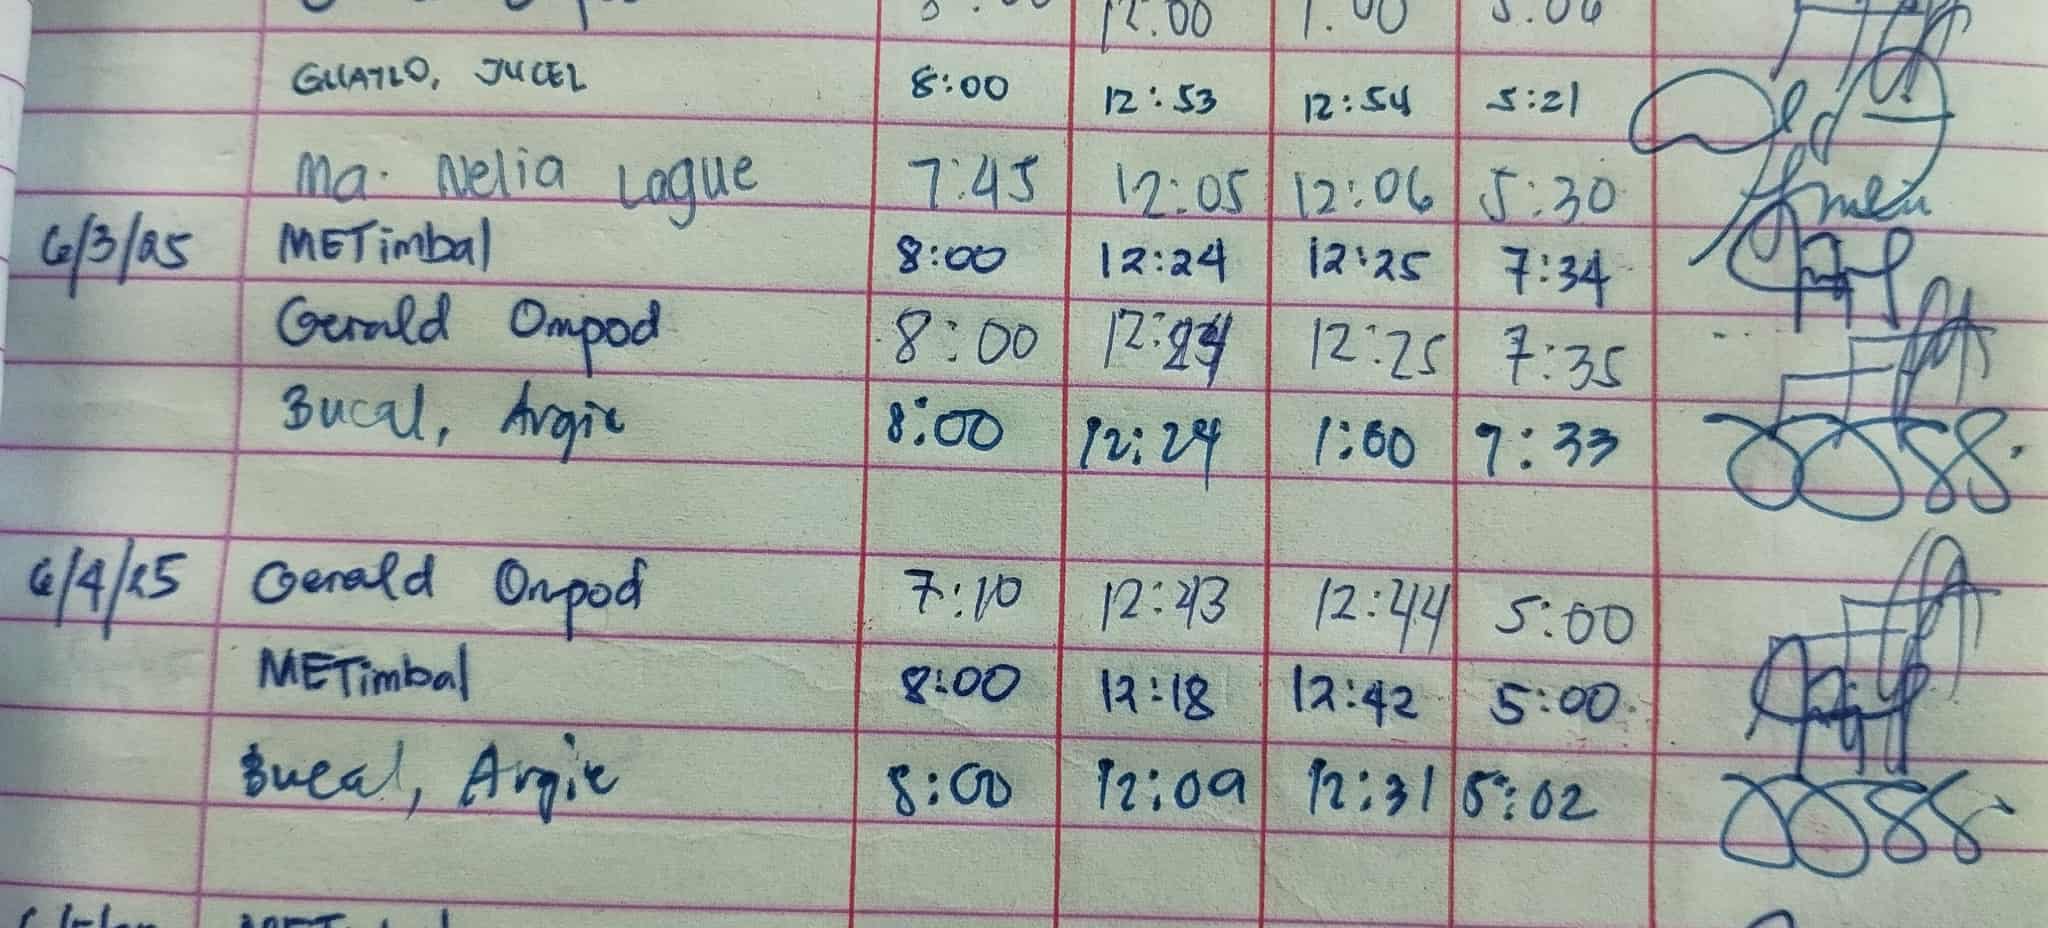 12:00 1:00 5:06
GUATLO, JUCEL 8:00 12:53 12:54 5:21
Ma. Nelia Logue 7:45 12:05 12:06 5:30
6/3/25 METimbal 8:00 12:24 12:25 7:34
Gerald Ompod 8:00 12:24 12:25 7:35
Bucal, Argie 8:00 12:24 1:00 7:33
6/4/25 Gerald Ompod 7:10 12:43 12:44 5:00
METimbal 8:00 12:18 12:42 5:00
Bucal, Argie 8:00 12:09 12:31 5:02